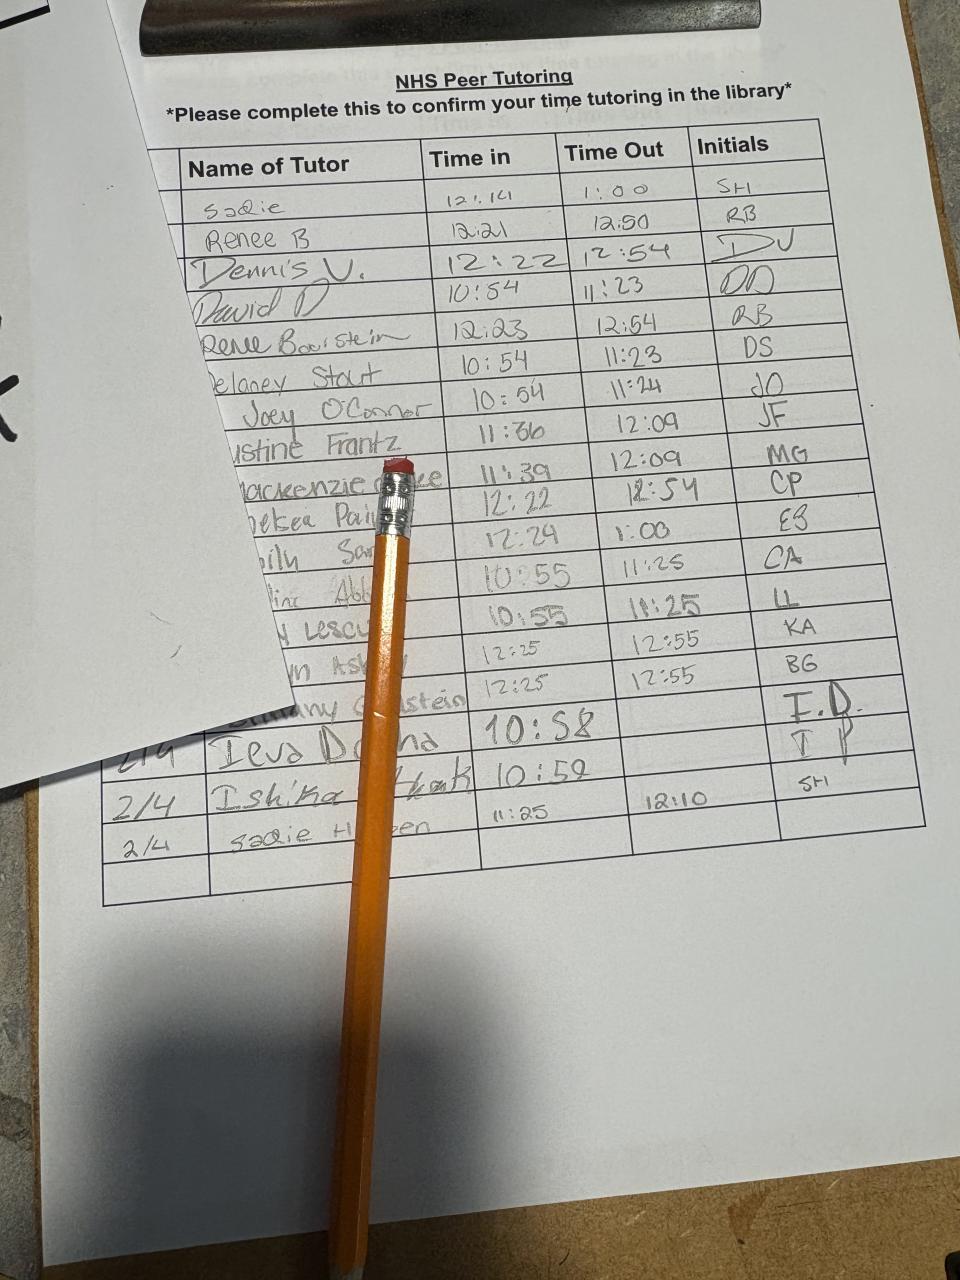 NHS Peer Tutoring
*Please complete this to confirm your time tutoring in the library*
Name of Tutor Time in Time Out Initials
Sadie 12:14 1:00 SH
Renee B 12:21 12:50 RB
Dennis V. 12:22 12:54 DV
David D 10:54 11:23 DD
Renee 12:23 12:54 RB
elaney Stout 10:54 11:23 DS
Joey O'Connor 10:54 11:24 JO
ustine Frantz 11:36 12:09 JF
ackenzie 11:39 12:09 MG
elsea Pai 12:22 12:54 CP
ily 12:29 1:00 ES
Abb 10:55 11:25 CA
Lescu 10:55 11:25 LL
n Ask 12:25 12:55 KA
any stein 12:25 12:55 BG
2/4 Ieva D na 10:58 I.D.
2/4 Ishika 10:59 IP
2/4 Sadie H en 11:25 12:10 SH